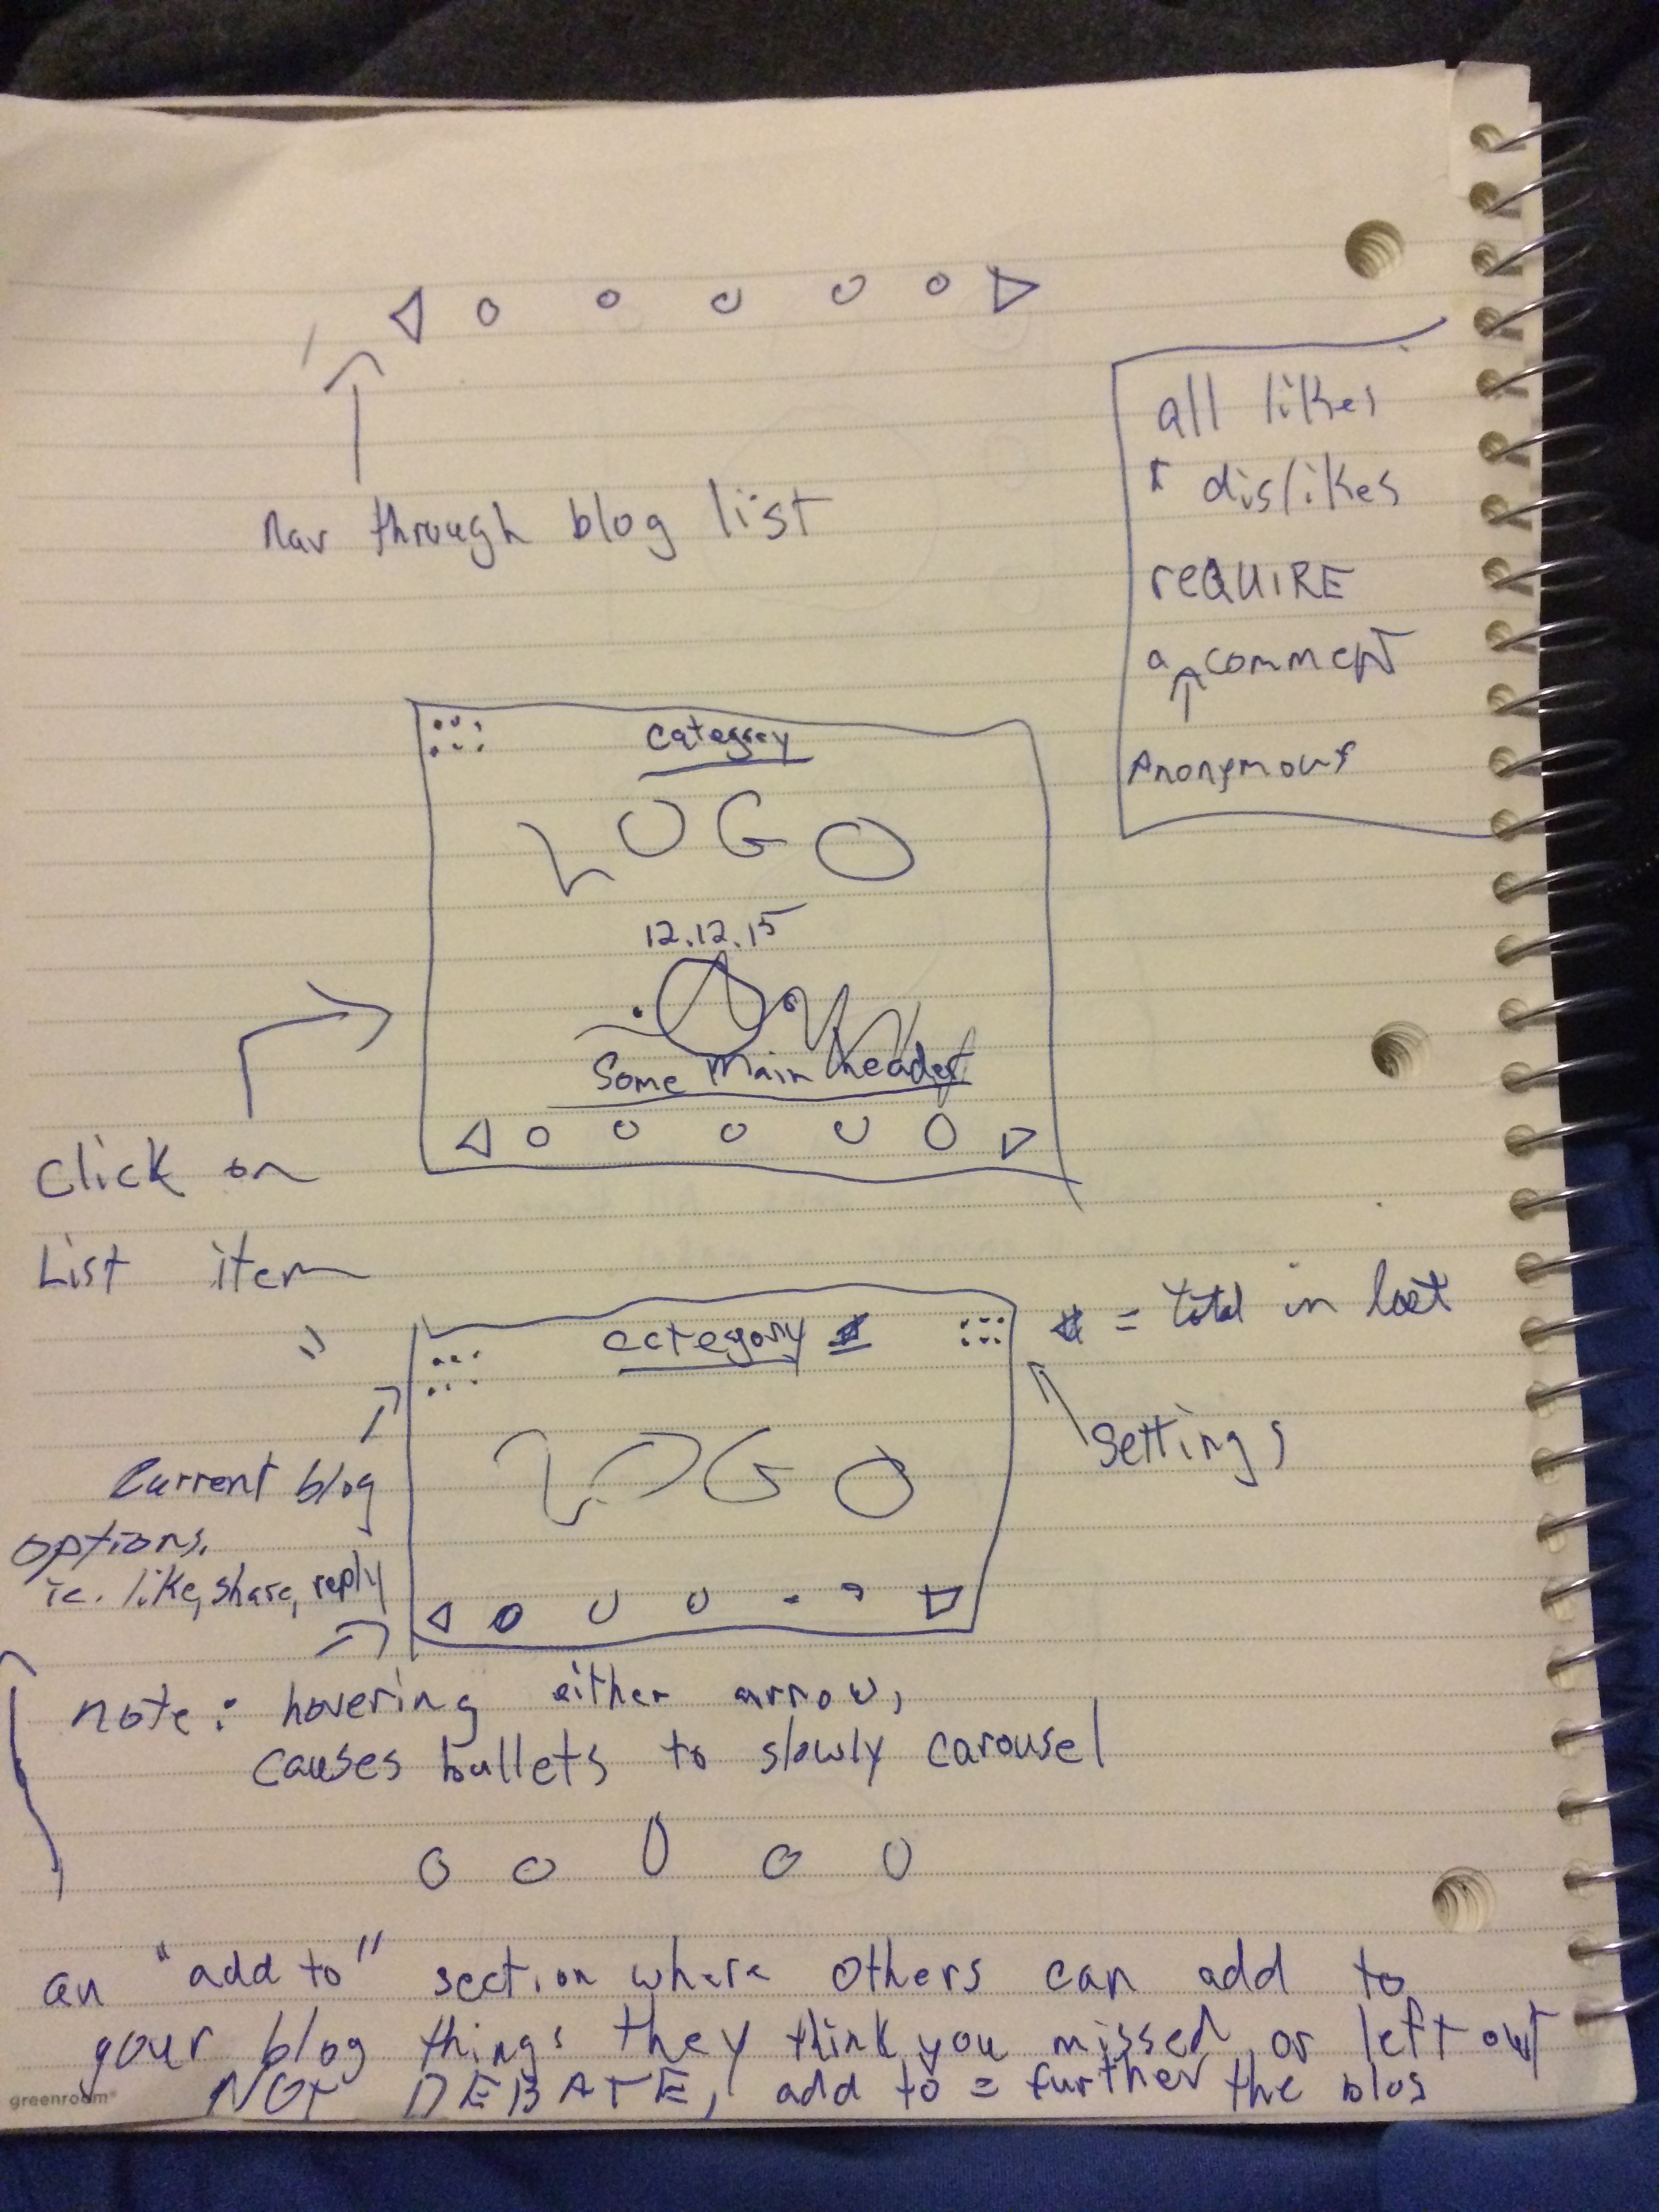 Nav through blog list
all likes
& dislikes
reQUIRE
a comment
Anonymous
category
LOGO
12.12.15
Some Main header
Click on
List item
category #
# = total in
Settings
LOGO
Current blog
options.
ie. like, share, reply
note: hovering either arrow,
causes bullets to slowly carousel
an "add to" section where others can add to
your blog things they think you missed or left out
NOT DEBATE, add to = further the blog
greenroom